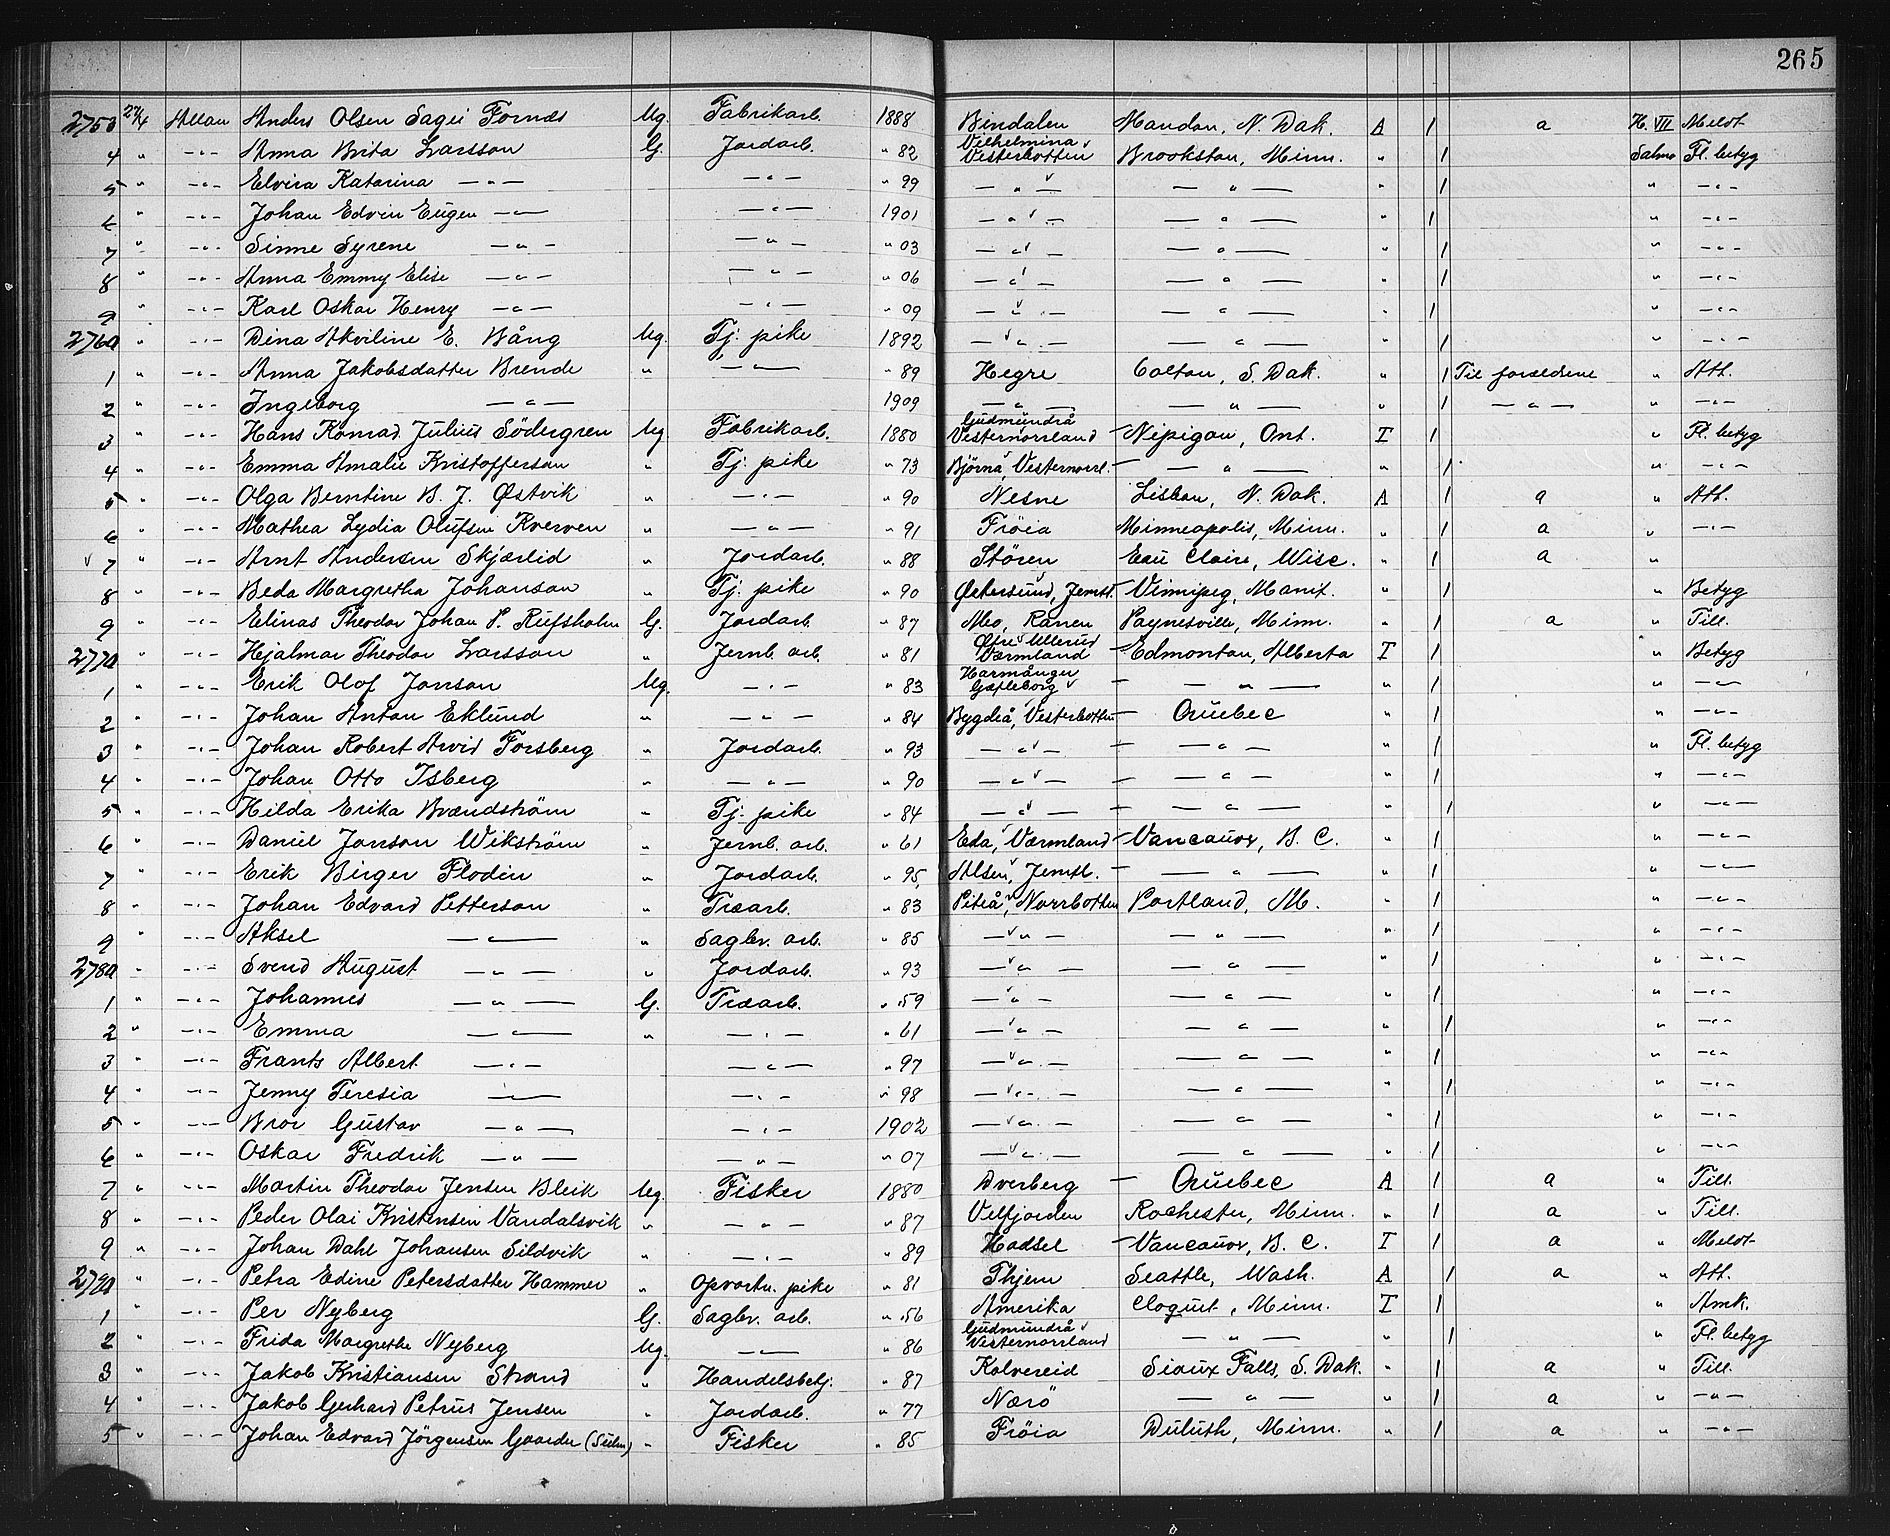 265
2753 27/4 Allan Anders Olsen Sagei Fornæs Ug. Fabrikarb. 1888 Bindalen Mandan, N. Dak. A 1 a H. VII Meldt
4 " -"- Anna Brita Larsson G. Jordarb. " 82 Vilhelmina Vesterbotten Brookston, Minn. " 1 Salmo Fl. betyg
5 " -"- Elvira Katarina -"- -"- " 99 -"- -"- " 1 " -"-
6 " -"- Johan Edvin Eugen -"- -"- 1901 -"- -"- " 1 " -"-
7 " -"- Sinne Syrene -"- -"- " 03 -"- -"- " 1 " -"-
8 " -"- Anna Emmy Elise -"- -"- " 06 -"- -"- " 1 " -"-
9 " -"- Karl Oskar Henry -"- -"- " 09 -"- -"- " 1 " -"-
2760 " -"- Dina Akviline E. Bång Ug. Tj. pike 1892 -"- -"- " 1 " -"-
1 " -"- Anna Jakobsdatter Brende " -"- " 89 Hegre Colton, S. Dak. " 1 Til forældrene " Att.
2 " -"- Ingeborg -"- 1909 -"- -"- " 1 -"- " -"-
3 " -"- Hans Konrad Julius Södergren Ug. Fabrikarb. 1880 Gudmundrå Vesternorrland Nipigon, Ont. T 1 " Fl. betyg
4 " -"- Emma Amalie Kristofferson " Tj. pike " 73 Björna, Vesternorrl. -"- " 1 " -"-
5 " -"- Olga Berntine B. J. Østvik " -"- " 90 Nesne Lisbon, N. Dak. A 1 a " Att.
6 " -"- Mathea Lydia Olufsen Kverven " -"- " 91 Fröia Minneapolis, Minn. " 1 a " -"-
7 " -"- Arnt Andersen Skjærlid " Jordarb. " 88 Stören Eau Claire, Wisc. " 1 a "
8 " -"- Beda Margretha Johanson " Tj. pike " 90 Østersund, Jemtl. Vinnipeg, Manit. " 1 " Betyg
9 " -"- Elinas Theodor Johan P. Rufsholm G. Jordarb. " 87 Mo, Ranen Paynesville, Minn. " 1 a " Till.
2770 " -"- Hjalmar Theodor Larsson " Jernb. arb. " 81 Øfre Ullerud Værmland Edmonton, Alberta T 1 " Betyg
1 " -"- Erik Olof Jonson Ug. -"- " 83 Harmånger Gæfleborg -"- " 1 " -"-
2 " -"- Johan Anton Eklund " -"- " 84 Bygdeå, Vesterbotten Quebec " 1 " -"-
3 " -"- Johan Robert Arvid Forsberg " Jordarb. " 93 -"- -"- " 1 " Fl. betyg
4 " -"- Johan Otto Isberg " -"- " 90 -"- -"- " 1 " -"-
5 " -"- Hilda Erika Brændström " Tj. pike " 84 -"- -"- " 1 " -"-
6 " -"- Daniel Jonson Wikström " Jernb. arb. " 61 Eda, Værmland Vancauver, B. C. " 1 " -"-
7 " -"- Erik Birger Flodin " Jordarb. " 95 Alsen, Jemtl. -"- " 1 " -"-
8 " -"- Johan Edvard Petterson " Træarb. " 83 Piteå, Norrbotten Portland, M. " 1 " -"-
9 " -"- Aksel -"- " Sagbr. arb. " 85 -"- -"- " 1 " -"-
2780 " -"- Svend August -"- " Jordarb. " 93 -"- -"- " 1 " -"-
1 " -"- Johannes -"- G. Træarb. " 59 -"- -"- " 1 " -"-
2 " -"- Emma -"- " -"- " 61 -"- -"- " 1 " -"-
3 " -"- Frants Albert -"- -"- " 97 -"- -"- " 1 " -"-
4 " -"- Jenny Teresia -"- -"- " 98 -"- -"- " 1 " -"-
5 " -"- Bror Gustav -"- -"- 1902 -"- -"- " 1 " -"-
6 " -"- Oskar Fredrik -"- -"- " 07 -"- -"- " 1 " -"-
7 " -"- Martin Theodor Jensen Bleik Ug. Fisker 1880 Dverberg Quebec A 1 a " Till.
8 " -"- Peder Olai Kristensen Vandalsvik " -"- " 87 Velfjorden Rochester, Minn. " 1 a " Till.
9 " -"- Johan Dahl Johansen Sildvik " -"- " 89 Hadsel Vancauver, B. C. T 1 a " Meldt
2790 " -"- Petra Edine Petersdatter Hammer " Opvartn. pike " 81 Thjem Seattle, Wash. A 1 a " Att.
1 " -"- Per Nyberg G. Sagbr. arb. " 56 Amerika Cloquet, Minn. T 1 " Amk.
2 " -"- Frida Margrethe Nyberg Ug. -"- " 86 Gudmundrå Vesternorrland -"- " 1 " Fl. betyg
3 " -"- Jakob Kristiansen Strand " Handelsbetj. " 87 Kolvereid Sioux Falls, S. Dak. " 1 a " Till.
4 " -"- Jakob Gerhard Petrus Jensen " Jordarb. " 77 Nærö -"- " 1 a " -"-
5 " -"- Johan Edvard Jörgensen Gaarder " Fisker " 85 Fröia Duluth, Minn. " 1 a " -"-